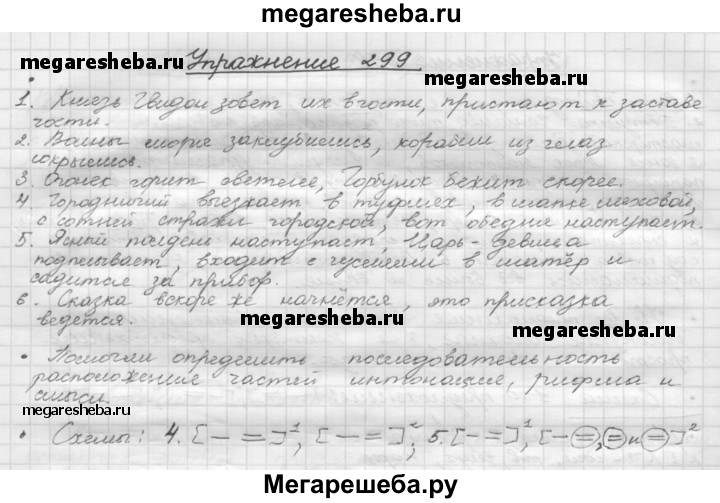 megaresheba.ru
Упражнение 299
megaresheba.ru
megaresheba.ru
1. Князь Гвидон зовет их в гости, пристают к заставе
гости.
2. Волны моря заклубились, корабли из глаз
сокрылись.
3. Огонек горит светлее, Горбунок бежит скорее.
4 Городничий выезжает в туфлях, в шапке меховой,
с сотней стражи городской, вот обедня наступает.
5. Ясный полдень наступает, Царь-девица
подплывает, входит с гуслями в шатёр и
садится за прибор.
6. Сказка вскоре же начнётся, это присказка
ведется.
megaresheba.ru
megaresheba.ru
• Помогли определить последовательность
расположение частей интонация, рифма и
смысл.
megaresheba.ru
• Схемы: 4. [– =]¹, [– =]², 5. [– =]¹, [– =, = и =]²
Мегарешеба.ру